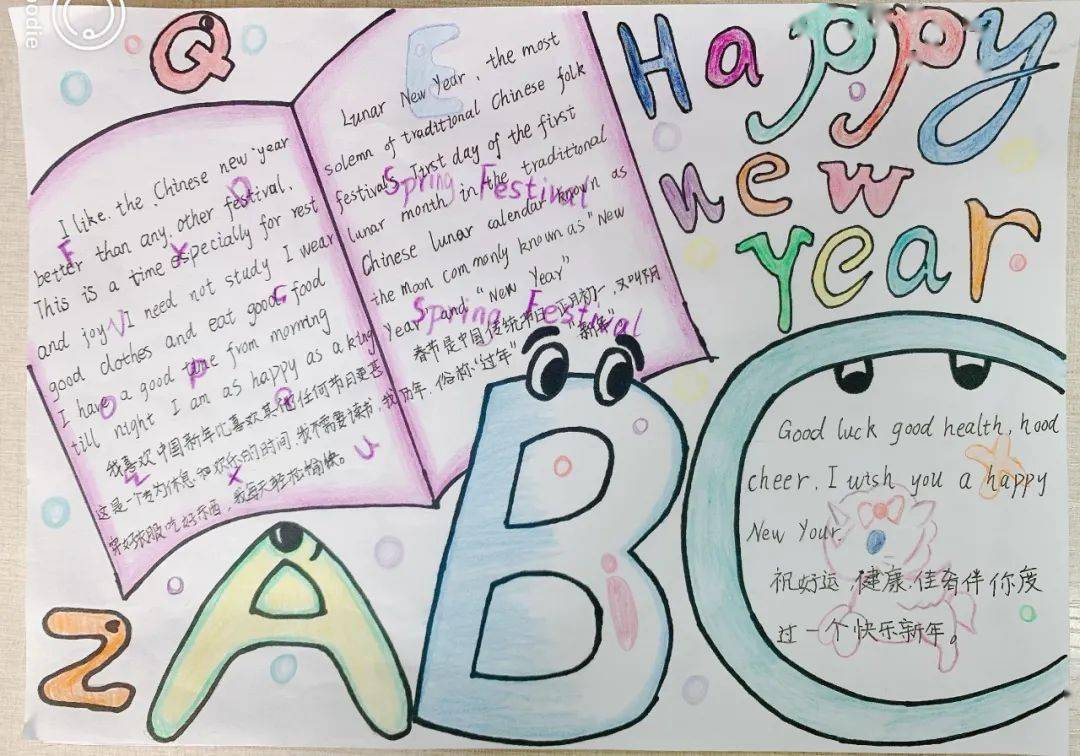 oodie
Q
E
Happy
new
year
I like. the Chinese new year
better than any other festival.
This is a time especially for rest
and joy I need not study I wear
good clothes and eat good food
I have a good time from morning
till night I am as happy as a king
我喜欢中国新年比喜欢其他任何节日更甚
这是一个专为休息和欢乐的时间.我不需要读书,我
穿好衣服吃好东西,我每天轻松愉快。
Lunar New Year, the most
solemn of traditional Chinese folk
festivals, First day of the first
lunar month in the traditional
Chinese lunar calendar known as
the moon commonly known as "New
Year" and "New Year"
春节是中国传统节日 正月初一,又叫阴
历年,俗称"过年" "新年"
Spring Festival
Spring Festival
Z
A
B
C
Good luck good health, hood
cheer. I wish you a happy
New Your.
祝好运,健康,佳肴伴你度
过一个快乐新年。